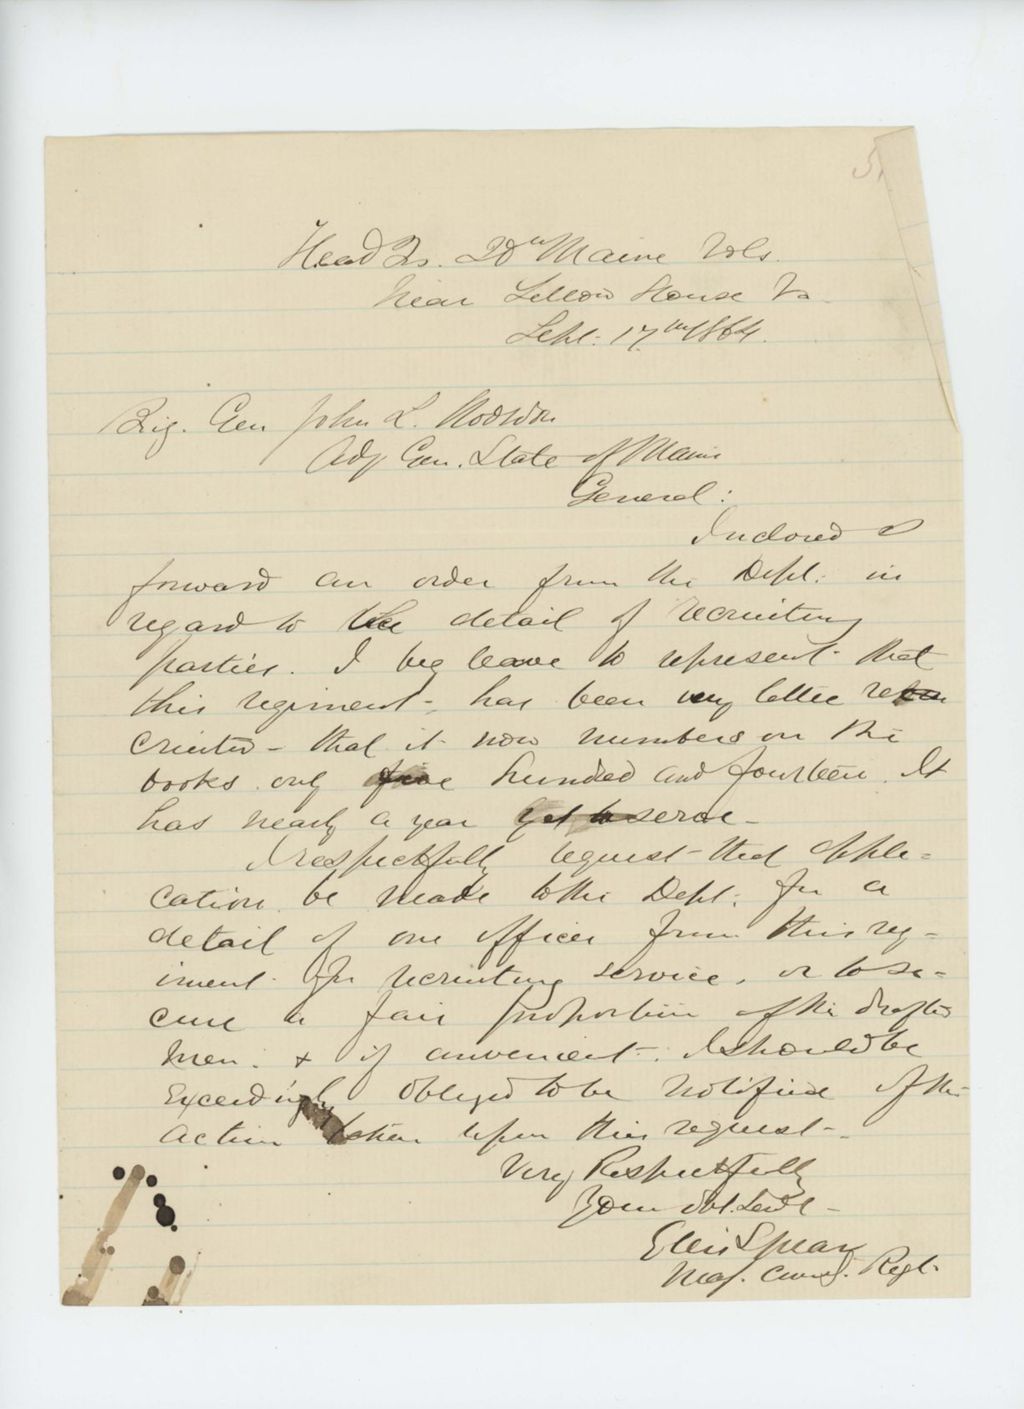 Head Qs. 20th Maine Vols.
Near Yellow House Va
Sept. 17th 1864.
Brig. Gen John L. Hodsdon
Adj Gen. State of Maine
General:
Inclosed I
forward an order from the Dept. in
regard to the detail of recruiting
parties. I beg leave to represent that
this regiment has been very little re
cruited - that it now numbers on the
books only five hundred and fourteen. It
has nearly a year yet to serve -
I respectfully request that appli=
cation be made to the Dept. for a
detail of one officer from this reg=
iment for recruiting service, or to se=
cure a fair proportion of the drafted
men. & if convenient I should be
exceedingly obliged to be notified of the
action taken upon this request.
Very Respectfully
Your Obt. Servt -
Ellis Spear
Maj. Comd'g. Regt.